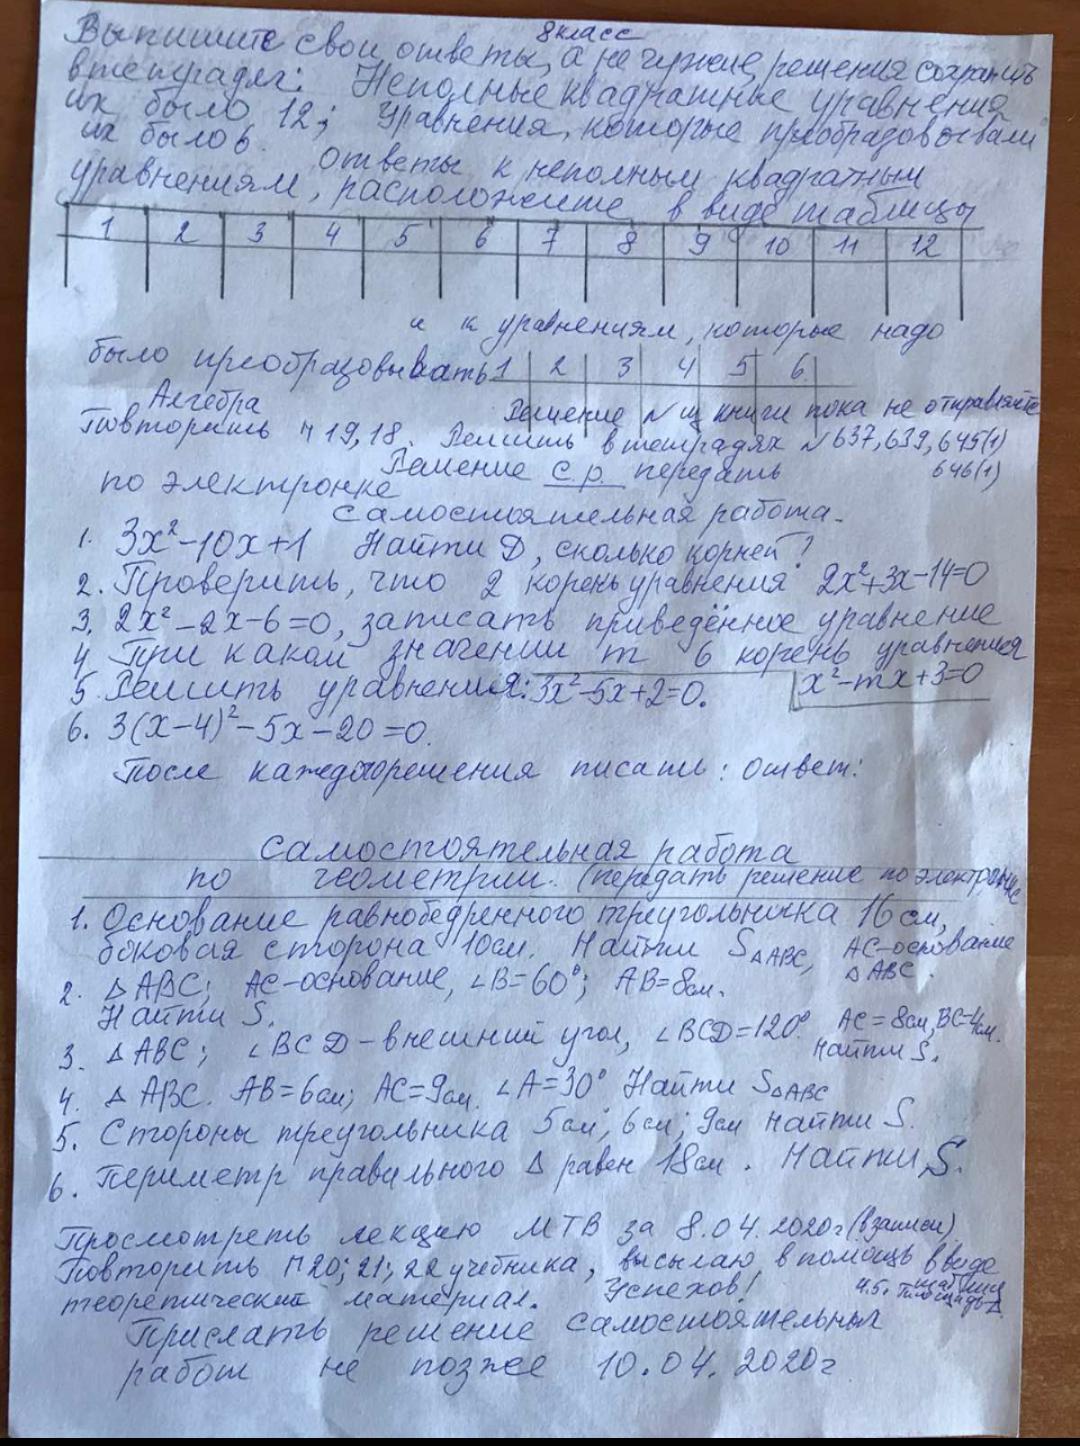 8 класс
Выпишите свои ответы, а не чужие, решения сохранить
в тетрадях: Неполные квадратные уравнения
их было 12; Уравнения, которые преобразовывали
их было 6. Ответы к неполным квадратным
уравнениям, расположите в виде таблицы
1 2 3 4 5 6 7 8 9 10 11 12
и к уравнениям, которые надо
было преобразовывать 1 2 3 4 5 6
Алгебра Решение № из книги пока не отправляйте
Повторить п 19, 18. Решить в тетрадях № 637, 639, 645(1)
Решение с.р. передать 646(1)
по электронке
Самостоятельная работа.
1. 3x²-10x+1 Найти D, сколько корней?
2. Проверить, что 2 корень уравнения 2x²+3x-14=0
3. 2x²-2x-6=0, записать приведённое уравнение
4 При каком значении m 6 корень уравнения
x²-mx+3=0
5. Решить уравнения: 3x²-5x+2=0.
6. 3(x-4)²-5x-20=0.
После каждого решения писать: ответ:
Самостоятельная работа
по геометрии. (передать решение по электронке
1. Основание равнобедренного треугольника 16 см,
боковая сторона 10см. Найти S△ABC, AC-основание
△ABC.
2. △ABC; AC-основание, ∠B=60°; AB=8см.
Найти S.
3. △ABC; ∠BCD-внешний угол, ∠BCD=120° AC=8см, BC=4см.
Найти S.
4. △ABC. AB=6см; AC=9см. ∠A=30° Найти S△ABC
5. Стороны треугольника 5см; 6см; 9см Найти S.
6. Периметр правильного △ равен 18см. Найти S.
Просмотреть лекцию МТВ за 8.04.2020г (в записи)
Повторить п 20; 21; 22 учебника, высылаю в помощь в виде
таблиц
теоретический материал. Успехов! Площадь △
Прислать решение самостоятельных
работ не позже 10.04.2020г